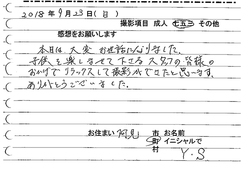 2018年9月23日(日)
撮影項目 成人 七五三 その他
感想をお願いします
本日は大変お世話になりました。
子供を楽しませて下さるスタッフの皆様の
おかげでリラックスして撮影ができたと思います。
ありがとうございました。
お住まい 阿見 市 町 村 お名前 イニシャルで
Y・S